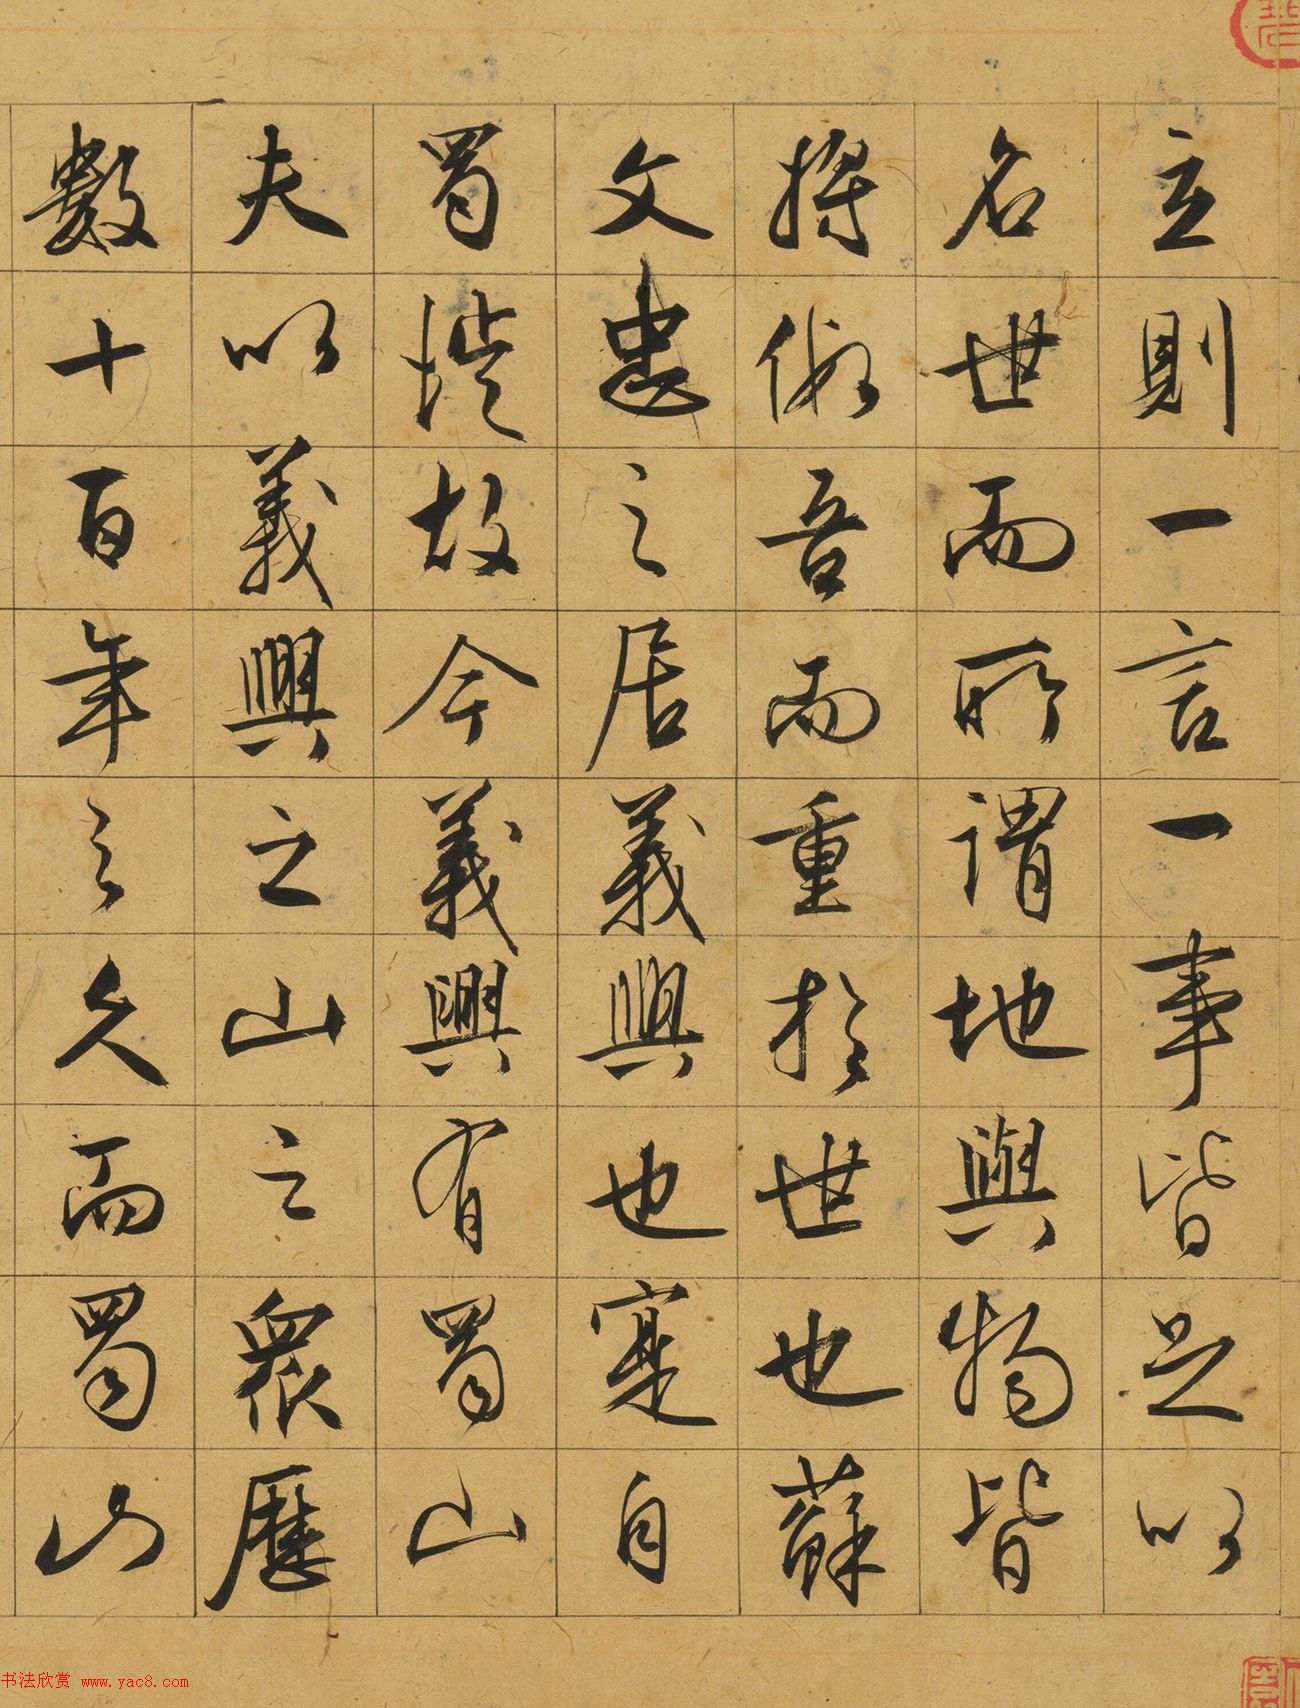 立則一言一事皆足以
名世而所謂地與物皆
將假吾而重於世也蘇
文忠之居義興也寔自
蜀徙故今義興有蜀山
夫以義興之山之衆歷
數十百年之久而蜀山
书法欣赏 www.yac8.com